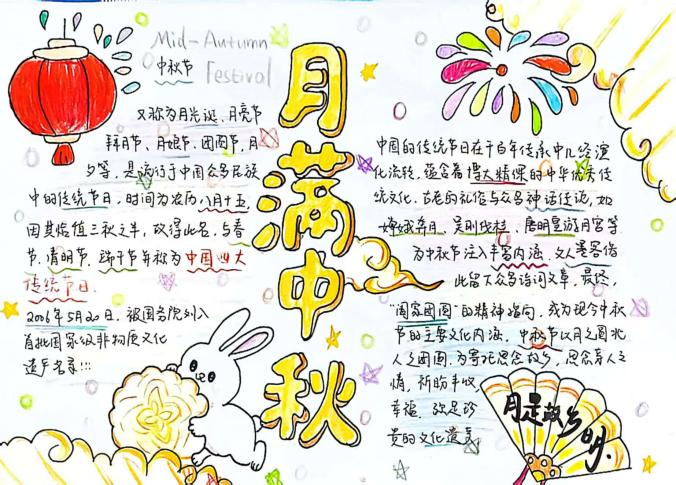 Mid-Autumn
中秋节 Festival
又称为月光诞、月亮节
拜月节、月娘节、团圆节、月
夕等，是流行于中国众多民族
中的传统节日，时间为农历八月十五，
因其恰值三秋之半，故得此名，与春
节、清明节、端午节并称为中国四大
传统节日。
2006年5月20日，被国务院列入
首批国家级非物质文化
遗产名录!!!
月满中秋
中国的传统节日在千百年传承中几经演
化流转，蕴含着博大精深的中华优秀传
统文化，古老的礼俗与众多神话传说，如
嫦娥奔月、吴刚伐桂、唐明皇游月宫等
为中秋节注入丰富内涵，文人墨客借
此留下众多诗词文章，最终，
“阖家团圆”的精神指向，成为现今中秋
节的主要文化内涵，中秋节以月之圆兆
人之团圆，为寄托思念故乡，思念亲人之
情，祈盼丰收、
幸福，弥足珍
贵的文化遗产
月是故乡明.